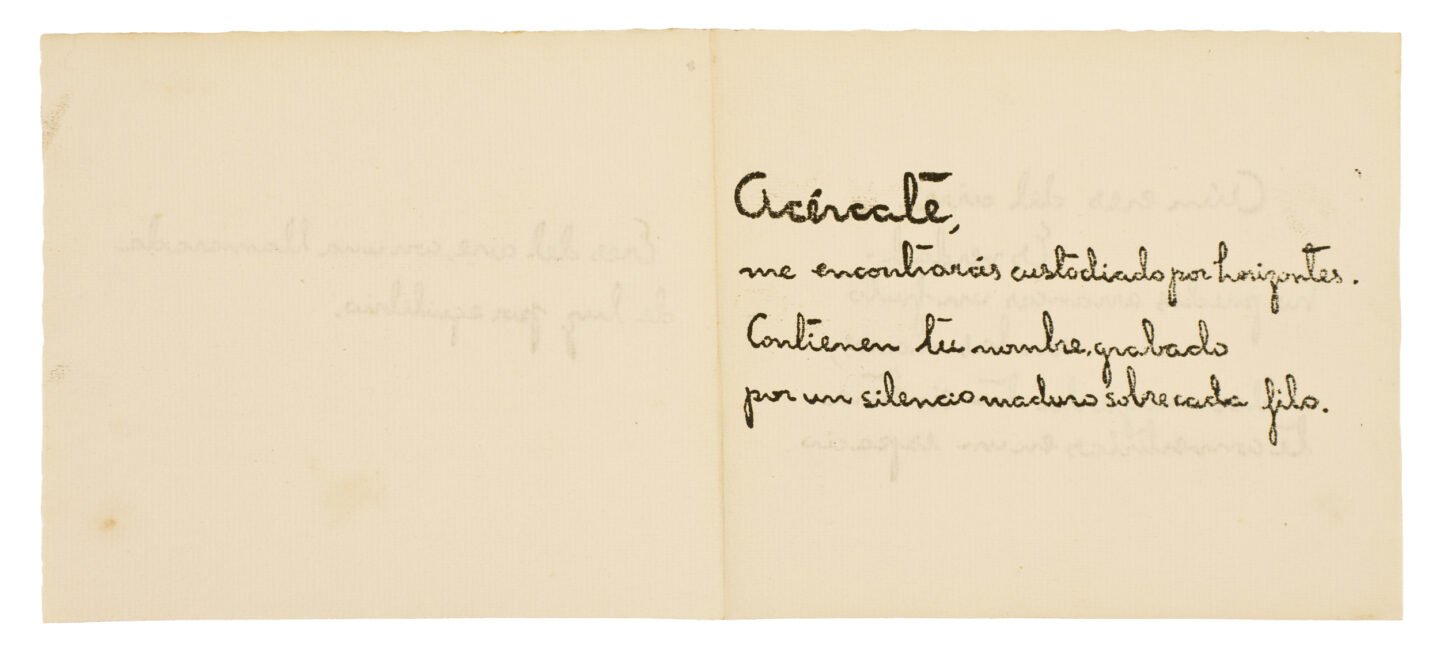 Acércate,
me encontrarás custodiado por horizontes.
Contienen tu nombre, grabado
por un silencio maduro sobre cada filo.